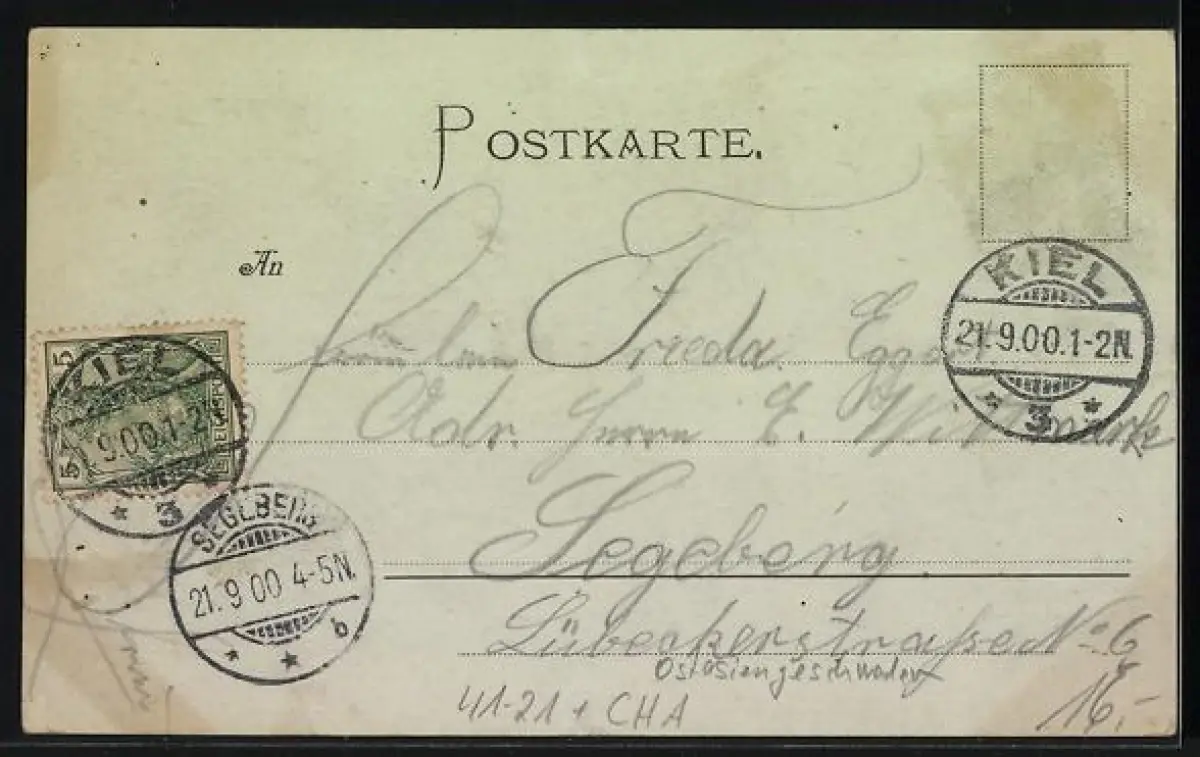 POSTKARTE.
An
Fräulein Frieda
Adr. Herrn
Segeberg
Lübeckerstraße No 6
Ostasiengeschwader
41-21 + CHA
16,-
KIEL
21.9.00.1-2N.
* 3 *
5
5
KIEL
9.00.1-2
* 3
SEGEBERG
21.9.00 4-5N.
* * b